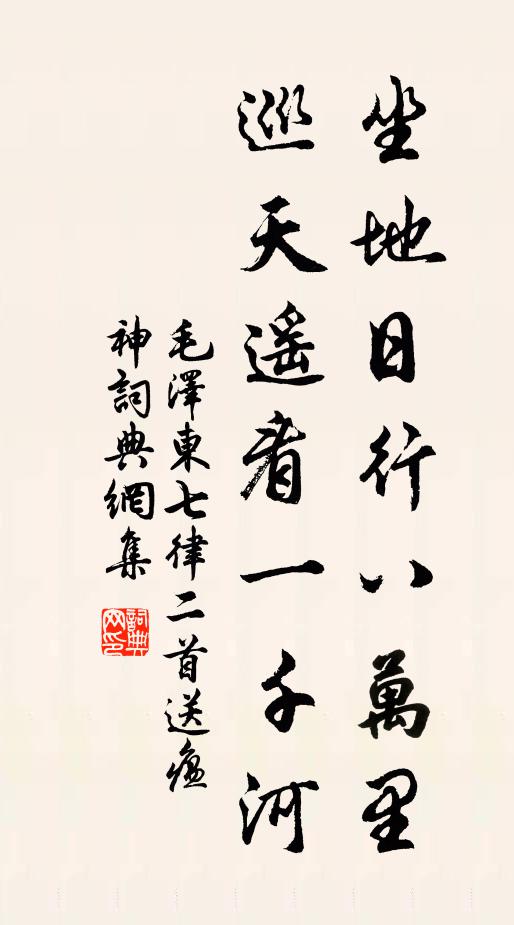 坐地日行八萬里
巡天遥看一千河
毛澤東七律二首送瘟
神詞典網集
詞典网印